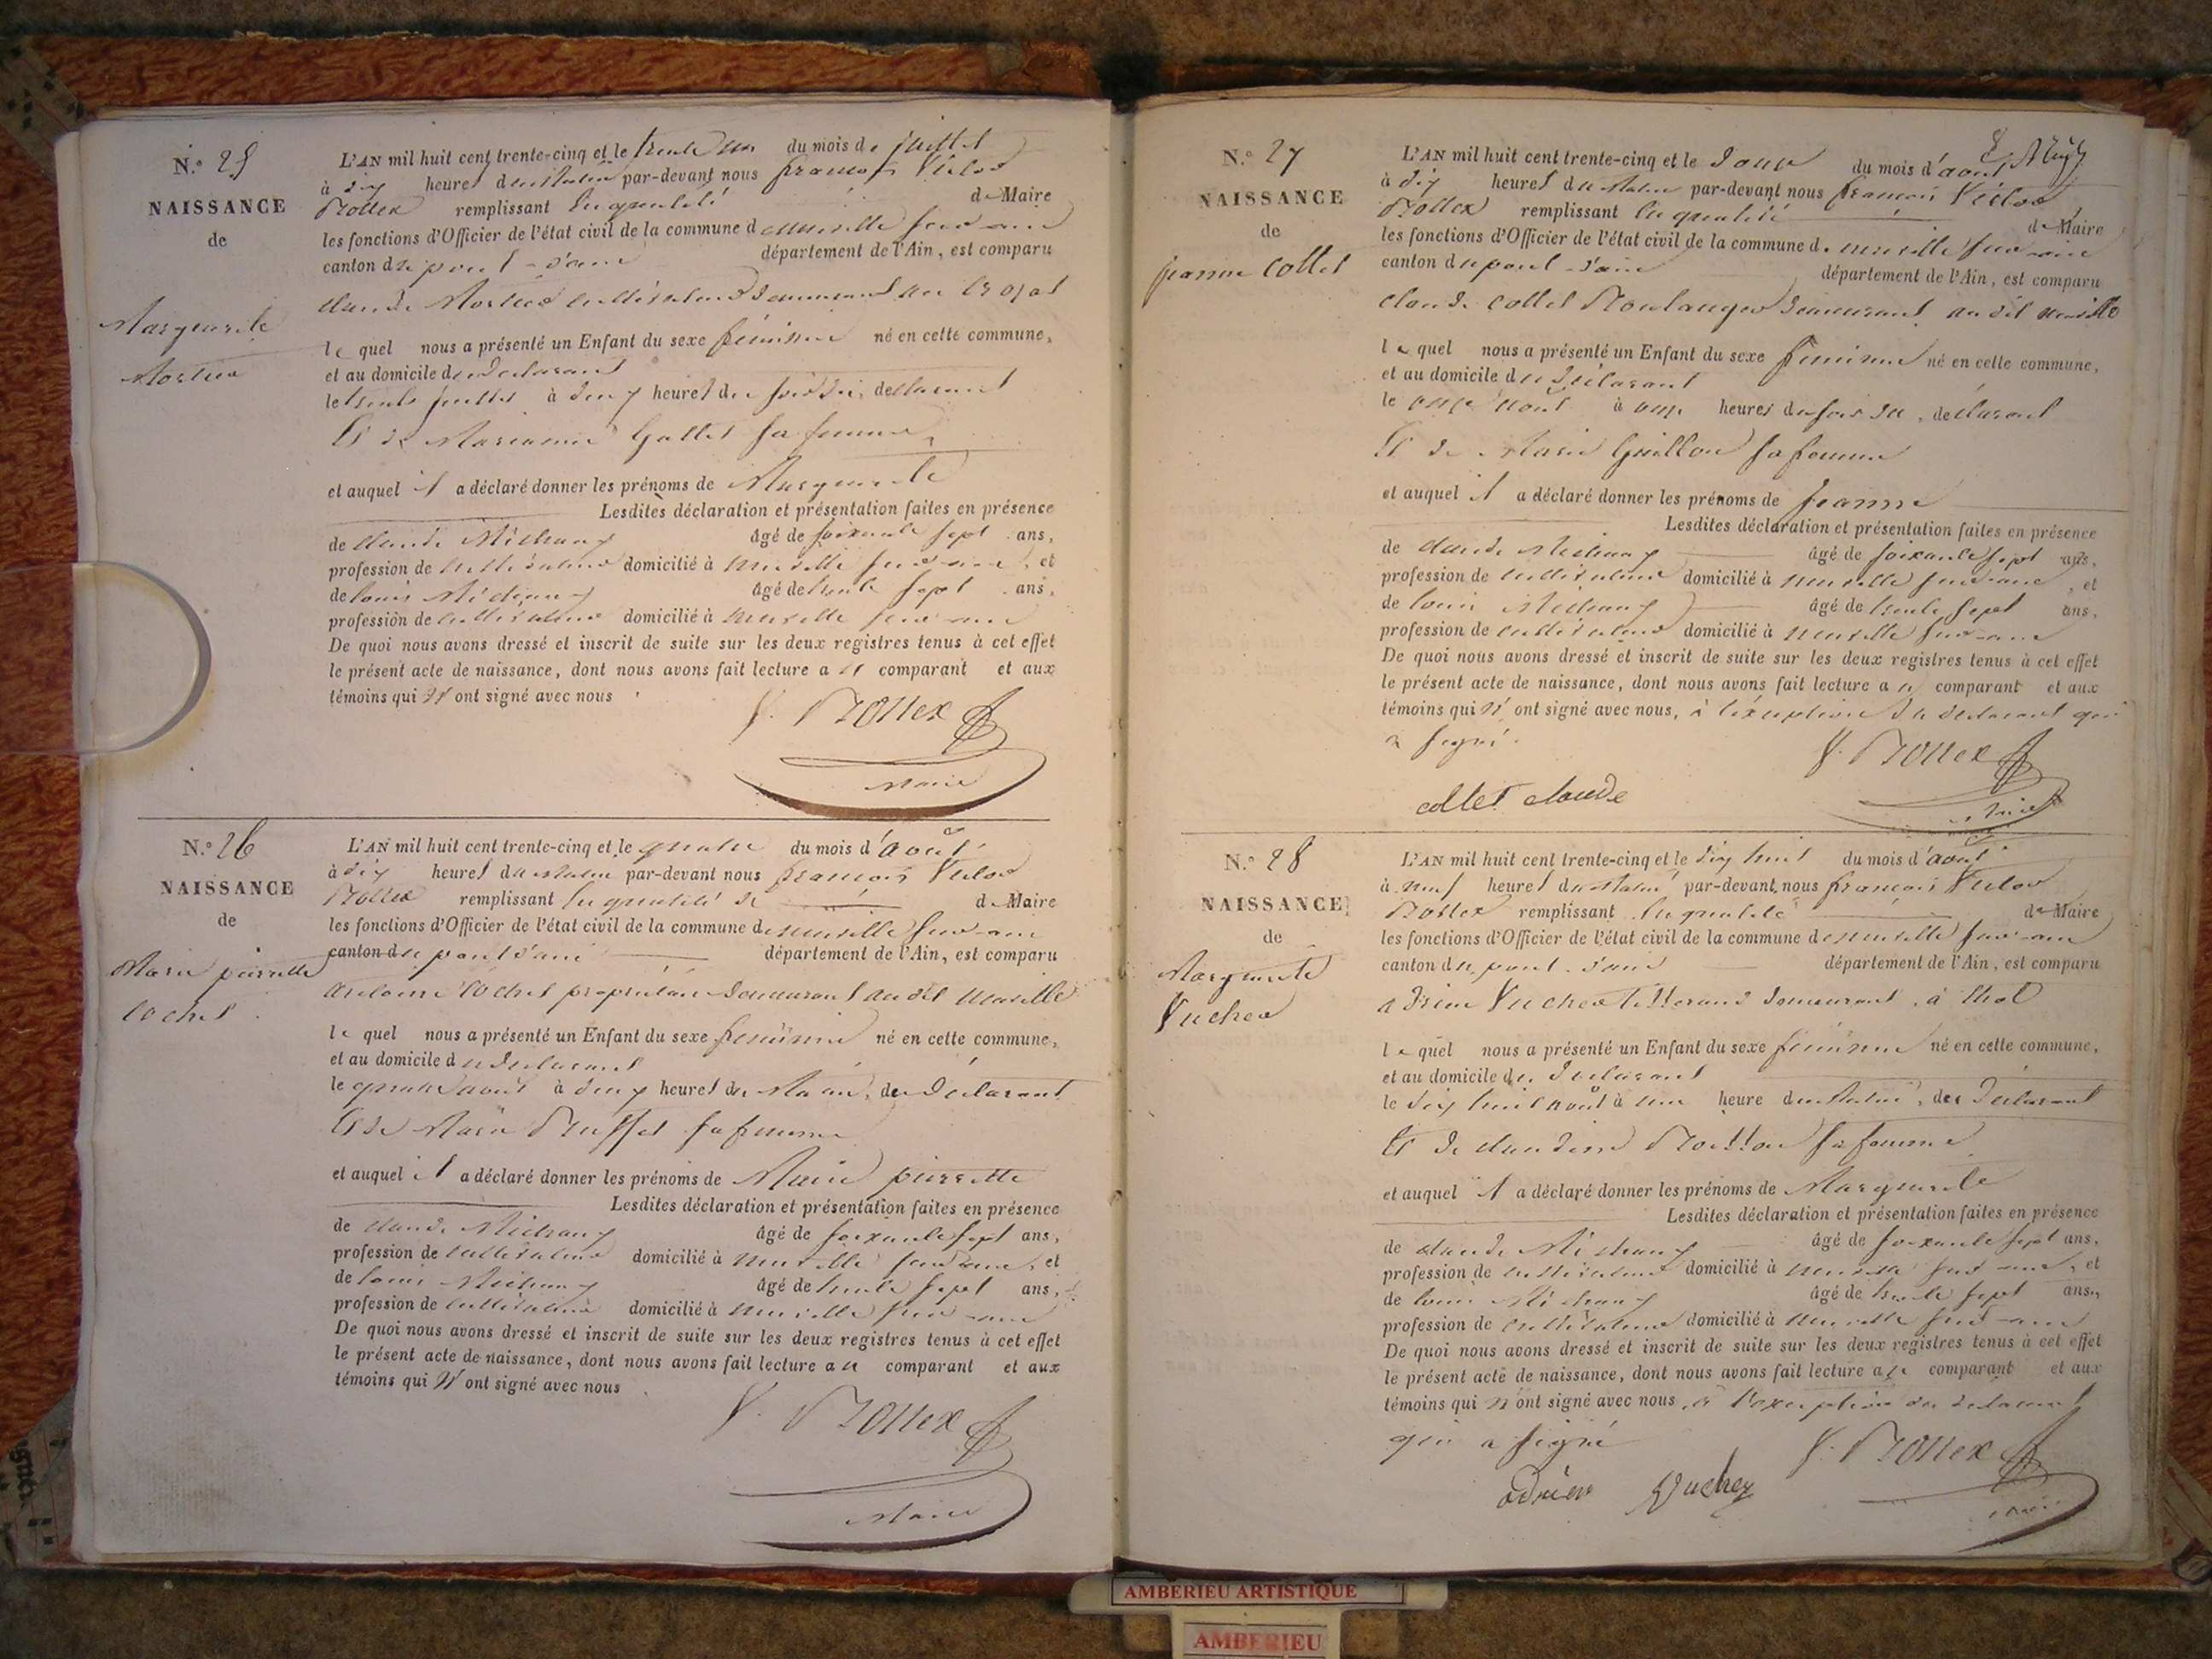 N.° 25
NAISSANCE
de
Marguerite
L'AN mil huit cent trente-cinq et le trente un du mois de juillet
à dix heures du matin par-devant nous françois Victor
Bottex remplissant les qualité de Maire
les fonctions d'Officier de l'état civil de la commune de neuville sur ain
canton de pont-d'ain département de l'Ain, est comparu
claude cultivateur demeurant au
le quel nous a présenté un Enfant du sexe féminin né en cette commune,
et au domicile du declarant
le trente juillet à deux heures du soir de lui, declarant
Et de Marianne Gallet sa femme
et auquel il a déclaré donner les prénoms de Marguerite
Lesdites déclaration et présentation faites en présence
de claude Michaux âgé de soixante sept ans,
profession de cultivateur domicilié à neuville sur ain, et
de louis Michaux âgé de trente sept ans,
profession de cultivateur domicilié à neuville sur ain
De quoi nous avons dressé et inscrit de suite sur les deux registres tenus à cet effet
le présent acte de naissance, dont nous avons fait lecture au comparant et aux
témoins qui n'ont signé avec nous
V. Bottex
Maire
N.° 26
NAISSANCE
de
Marie pierrette
cochet
L'AN mil huit cent trente-cinq et le quatre du mois d'août
à dix heures du matin par-devant nous françois Victor
Bottex remplissant les qualité de de Maire
les fonctions d'Officier de l'état civil de la commune de neuville sur ain
canton de pont d'ain département de l'Ain, est comparu
antoine cochet propriétaire demeurant au dit neuville
le quel nous a présenté un Enfant du sexe féminin né en cette commune,
et au domicile du declarant
le quatre août à deux heures du matin, du declarant
Et de Marie Buffet sa femme
et auquel il a déclaré donner les prénoms de Marie pierrette
Lesdites déclaration et présentation faites en présence
de claude Michaux âgé de soixante sept ans,
profession de cultivateur domicilié à neuville sur ain, et
de louis Michaux âgé de trente sept ans,
profession de cultivateur domicilié à neuville sur ain
De quoi nous avons dressé et inscrit de suite sur les deux registres tenus à cet effet
le présent acte de naissance, dont nous avons fait lecture au comparant et aux
témoins qui n'ont signé avec nous
V. Bottex
Maire
N.° 27
NAISSANCE
de
jeanne collet
L'AN mil huit cent trente-cinq et le douze du mois d'août
à dix heures du matin par-devant nous françois Victor
Bottex remplissant les qualité de Maire
les fonctions d'Officier de l'état civil de la commune de neuville sur ain
canton de pont-d'ain département de l'Ain, est comparu
claude collet Boulanger demeurant au dit neuville
le quel nous a présenté un Enfant du sexe féminin né en cette commune,
et au domicile du déclarant
le onze août à onze heures du soir du, declarant
Et de Marie Guillon sa femme
et auquel il a déclaré donner les prénoms de jeanne
Lesdites déclaration et présentation faites en présence
de claude Michaux âgé de soixante sept ans,
profession de cultivateur domicilié à neuville sur ain, et
de louis Michaux âgé de trente sept ans,
profession de cultivateur domicilié à neuville sur ain
De quoi nous avons dressé et inscrit de suite sur les deux registres tenus à cet effet
le présent acte de naissance, dont nous avons fait lecture au comparant et aux
témoins qui n'ont signé avec nous, à l'exception du declarant qui
a signé.
V. Bottex
collet claude
Maire
N.° 28
NAISSANCE
de
Marguerite
Vucher
L'AN mil huit cent trente-cinq et le dix huit du mois d'août
à neuf heures du matin par-devant nous françois Victor
Bottex remplissant les qualité de Maire
les fonctions d'Officier de l'état civil de la commune de neuville sur ain
canton de pont-d'ain département de l'Ain, est comparu
adrien Vucher tisserand demeurant à thol
le quel nous a présenté un Enfant du sexe féminin né en cette commune,
et au domicile du declarant
le dix huit août à une heure du matin, du declarant
Et de claudine sa femme
et auquel il a déclaré donner les prénoms de Marguerite
Lesdites déclaration et présentation faites en présence
de claude Michaux âgé de soixante sept ans,
profession de cultivateur domicilié à neuville sur ain, et
de louis Michaux âgé de trente sept ans,
profession de cultivateur domicilié à neuville sur ain
De quoi nous avons dressé et inscrit de suite sur les deux registres tenus à cet effet
le présent acte de naissance, dont nous avons fait lecture au comparant et aux
témoins qui n'ont signé avec nous, à l'exception du declarant
qui a signé
V. Bottex
adrien Vucher
Maire
AMBERIEU ARTISTIQUE
AMBERIEU